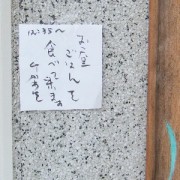 12:35〜
お昼
ごはんを
食べて来ます